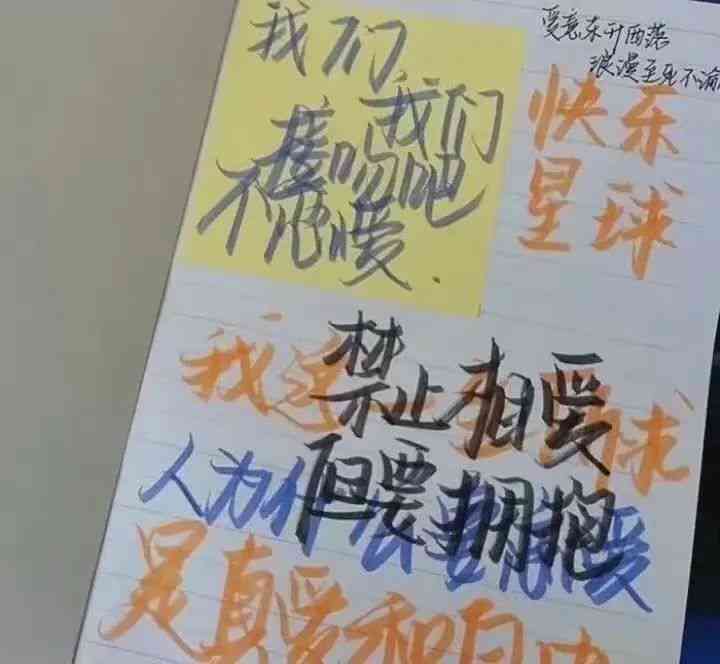 我们
我们
接吻吧
不他爱.
爱意东升西落
浪漫至死不渝
快乐
星球
我这一生 求
禁止相爱
但要拥抱
人为什么要 爱
是真爱和自由